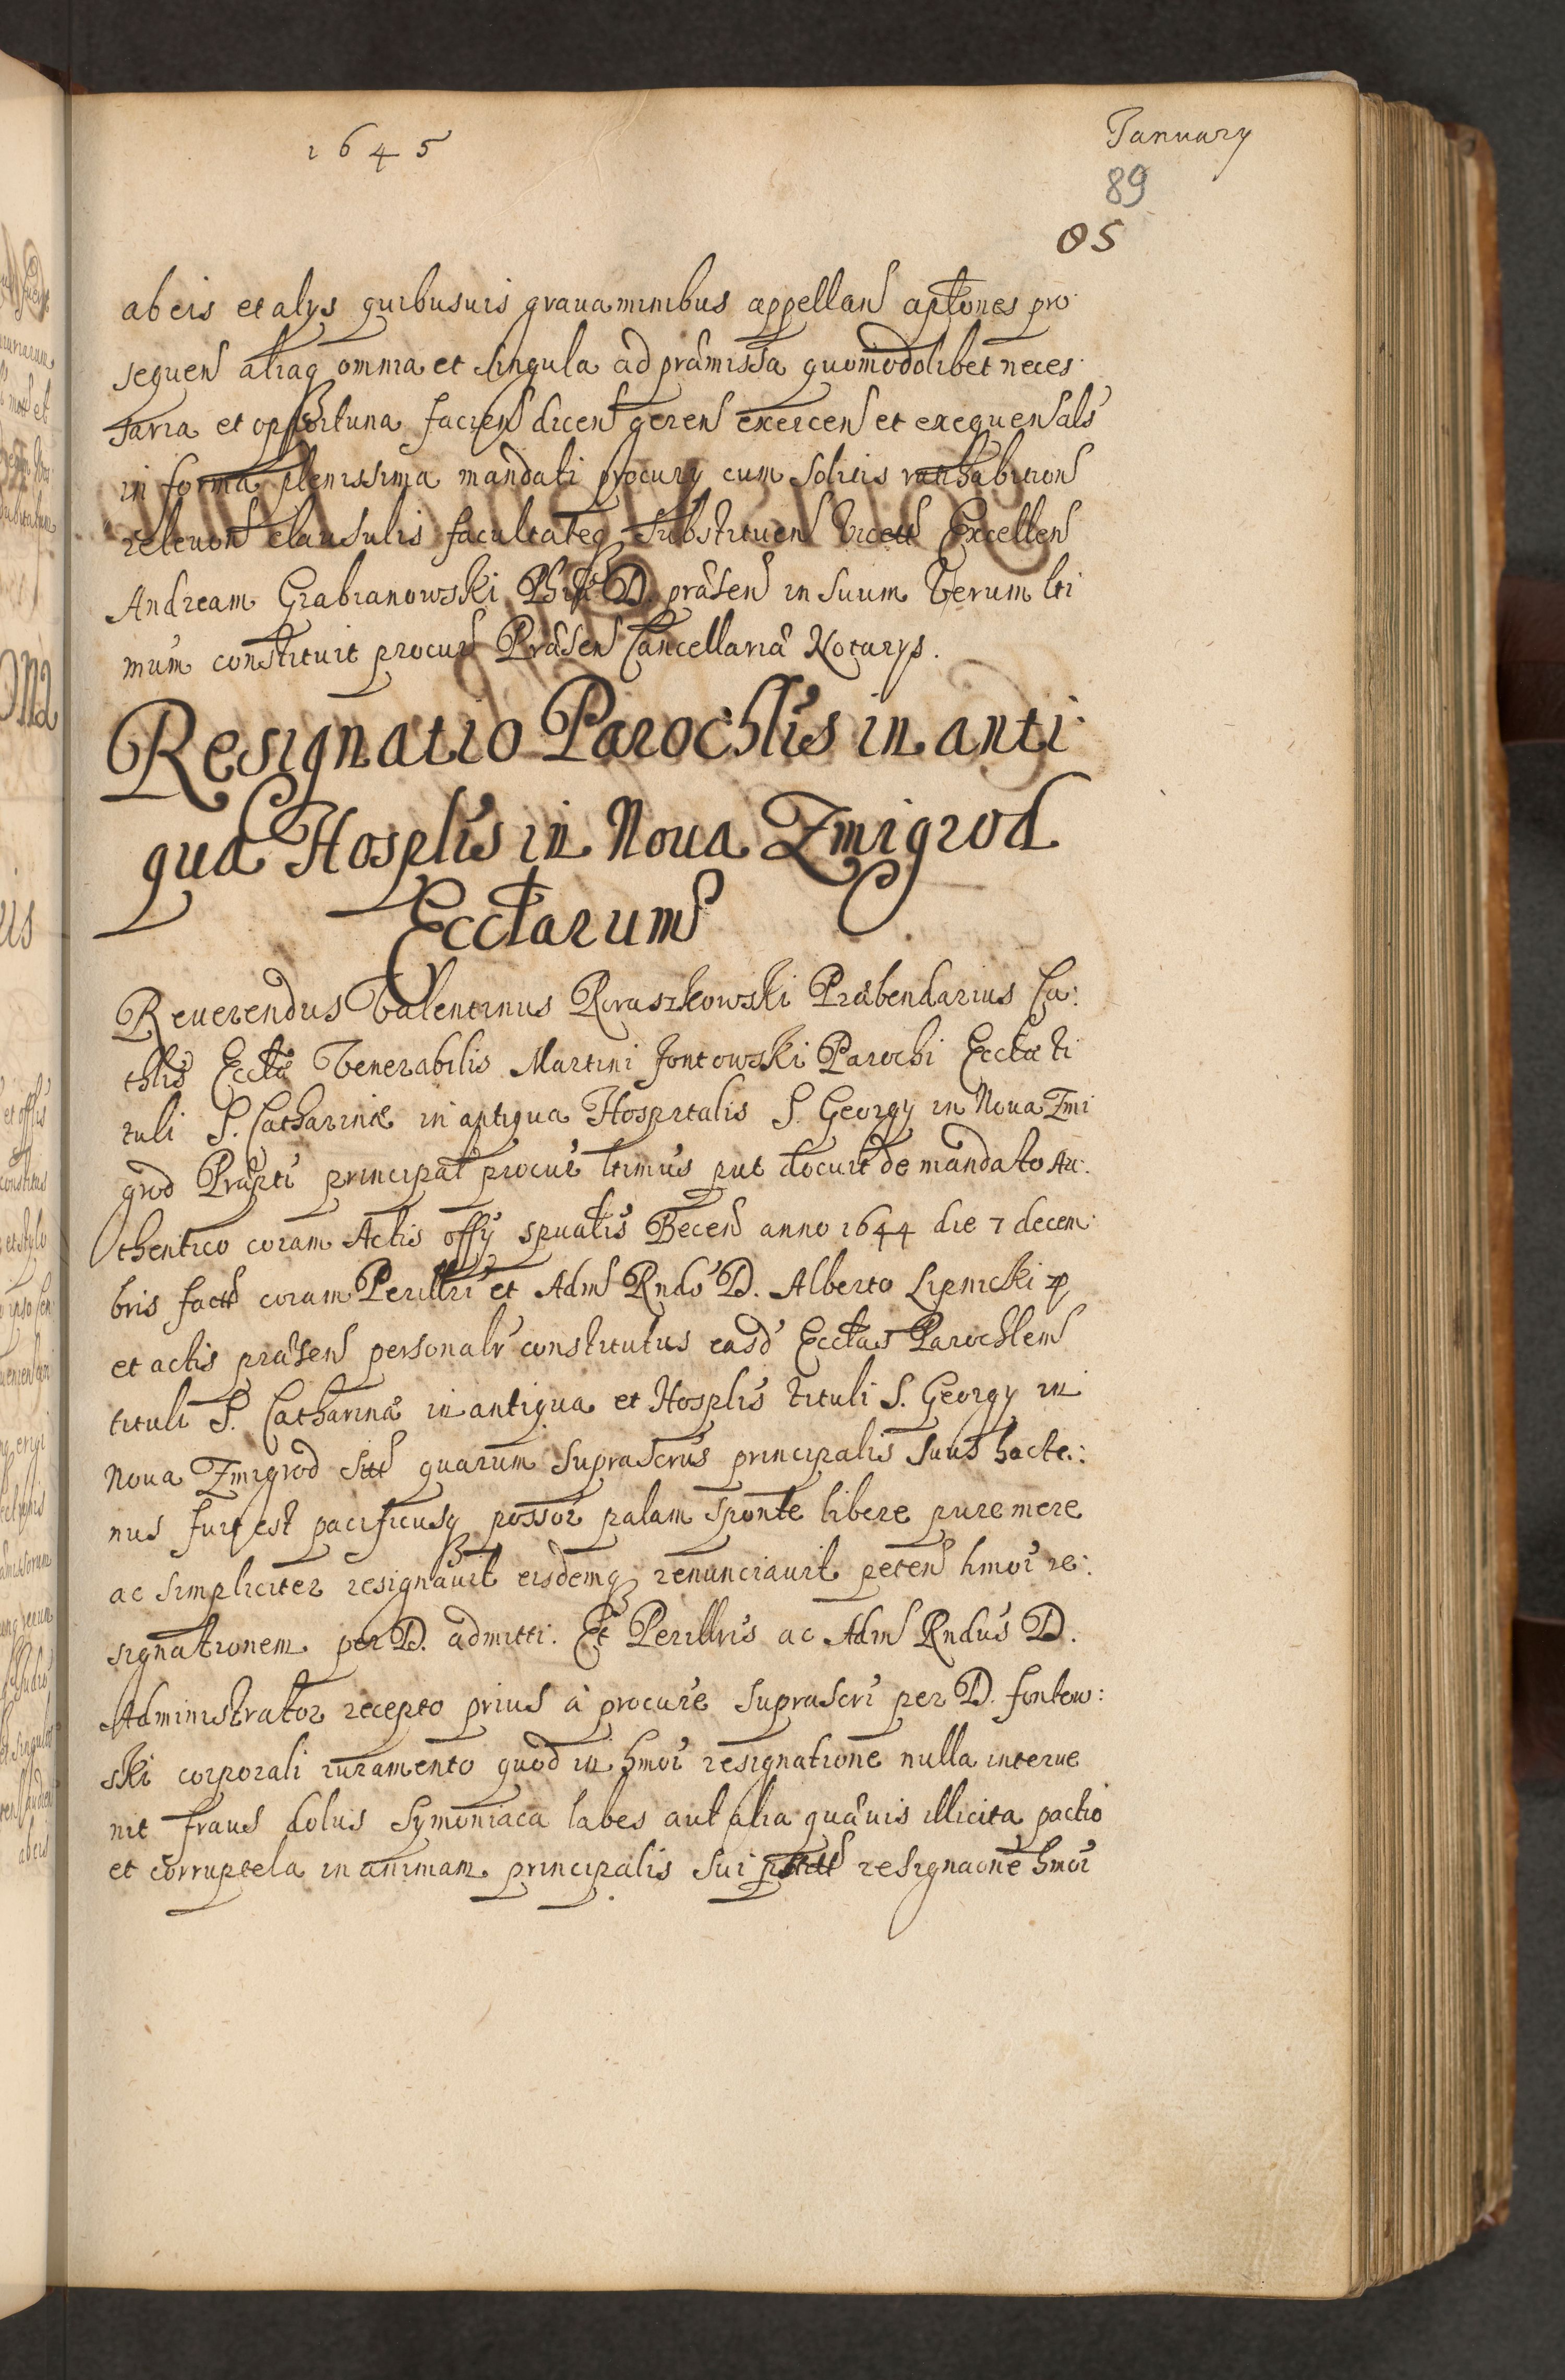 1645
January
89
85
ab eis et alys quibusuis grauaminibus appellan aptones pro
sequen aliaq omnia et singula ad præmissa quomodolibet neces
saria et opportuna facien dicen geren exercen et exequen als
in forma plenissima mandati procury cum solitis rathabition
releuon clausulis facultateq substituen Excellen
Andream Grabianowski Phiæ D. præsen in suum verum lti
mum constituit procur Præsen Cancellariæ Notarys.
Resignatio Parochlis in anti
qua Hosplis in Noua Zmigrod
Ecctarum
Reuerendus Valentinus Præbendarius Ca:
thlis Ecctæ Venerabilis Martini Jontowski Parochi Ecctæ ti
tuli S. Catharinæ in antiqua Hospitalis S. Georgy in Noua Zmi
grod Præpti principal procur ltimus put docuit de mandato Au:
thentico coram Actis offy spualis Becen anno 1644 die 7 decem
bris fact coram Perillri et Adm Rndo D. Alberto Lipnicki
et actis præsen personalr constitutus easd Ecctas Parochlem
tituli S. Catharinæ in antiqua et Hosplis tituli S. Georgy in
Noua Zmigrod sit quarum suprascrus principalis suus hacte:
nus fuit est pacificusq possor palam sponte libere pure mere
ac simpliciter resignauit eisdemq renunciauit peten hmoi re:
signationem per D. admitti. Et Perillris ac Adm Rndus D.
Administrator recepto prius à procure suprascri per D. fontow:
ski corporali iuramento quod in hmoi resignatione nulla interue
nit fraus dolus symoniaca labes aut alia quæuis illicita pactio
et corruptela in animam principalis sui resignaone hmoi